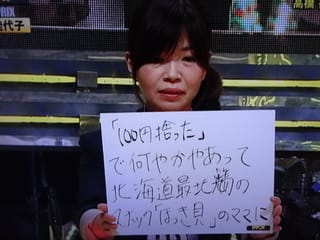 PRIX
佳代子
高橋
「100円拾った」
で何やかやあって
北海道最北端の
スナック「ほっき貝」のママに
IPPON